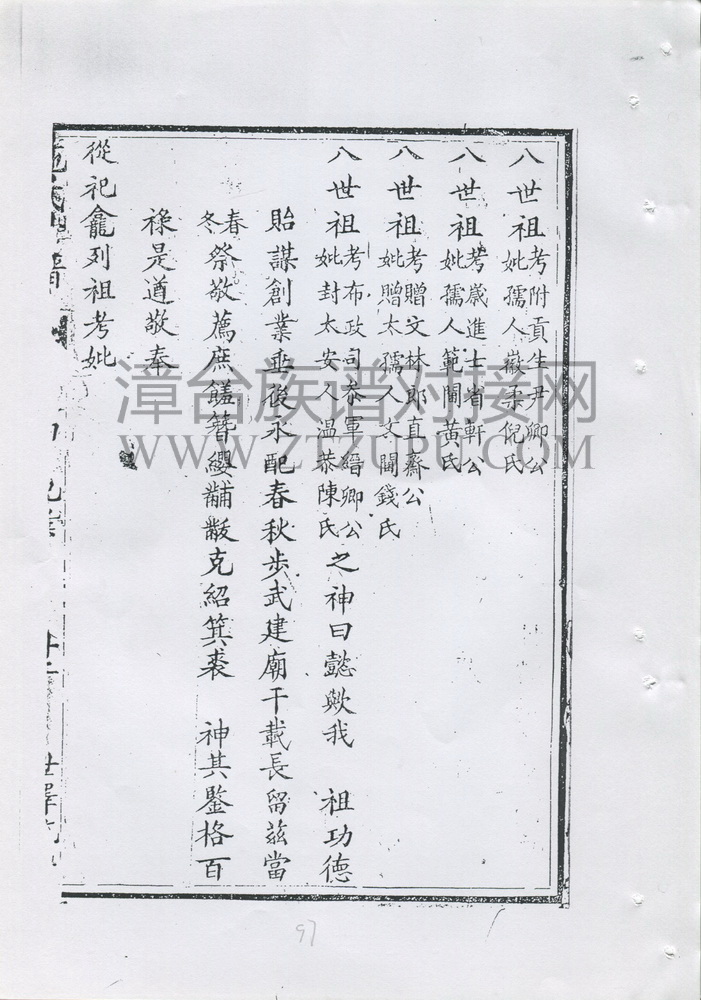 八世祖考附貢生尹卿公
妣孺人徽柔倪氏
八世祖考歲進士省軒公
妣孺人範閫黃氏
八世祖考贈文林郎直齋公
妣贈太孺人文閫錢氏
八世祖考布政司叅軍縉卿公
妣封太安人温恭陳氏之神曰懿歟我　祖功德
貽謀創業垂後永配春秋步武建廟千載長留兹當
春冬祭敬薦庶饈簪纓黼黻克紹箕裘　神其鑒格百
祿是遒敬奉
從祀龕列祖考妣
漳台族谱对接网
WWW.ZTZUPU.COM
97